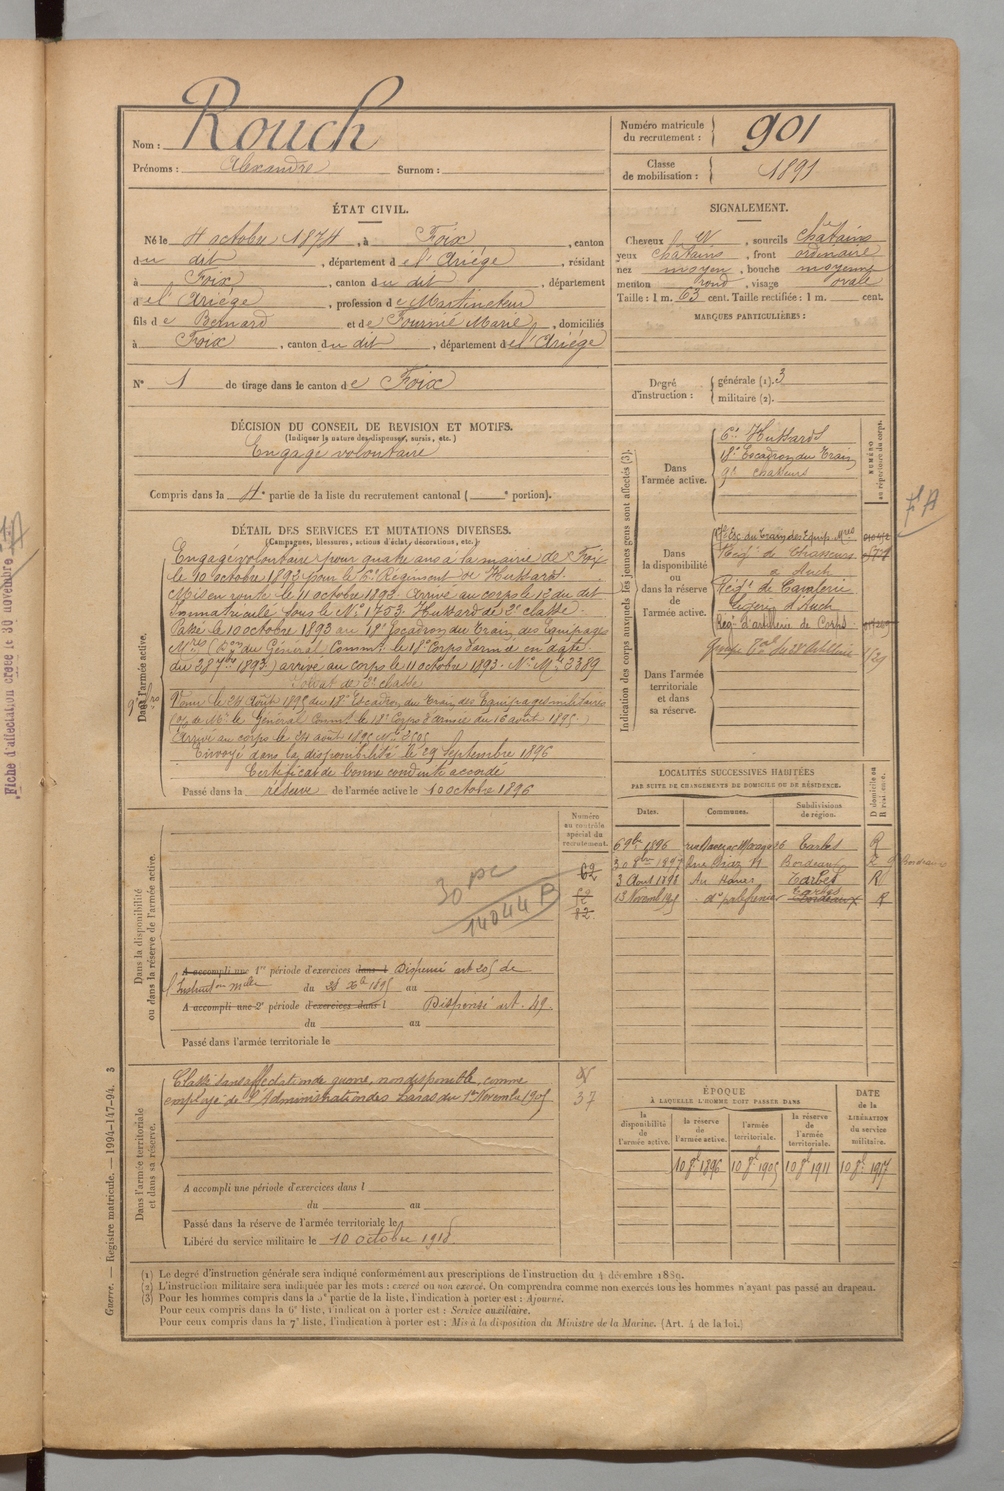 Nom : Rouch
Prénoms : Alexandre Surnom :
Numéro matricule du recrutement : 901
Classe de mobilisation : 1891
ÉTAT CIVIL.
Né le 4 octobre 1874, à Foix, canton
du dit, département de l'Ariège, résidant
à Foix, canton du dit, département
d el'Ariège, profession de
fils de Bernard et de Fournié Marie, domiciliés
à Foix, canton du dit, département de l'Ariège
N° 1 de tirage dans le canton de Foix
SIGNALEMENT.
Cheveux , sourcils châtains
yeux châtains, front ordinaire
nez moyen, bouche moyenne
menton rond, visage ovale
Taille : 1 m. 63 cent. Taille rectifiée : 1 m. cent.
MARQUES PARTICULIÈRES :
Degré d'instruction : générale (1). 3
militaire (2).
DÉCISION DU CONSEIL DE REVISION ET MOTIFS.
(Indiquer la nature des dispenses, sursis, etc.)
Engagé volontaire
Compris dans la 4e partie de la liste du recrutement cantonal ( e portion).
DÉTAIL DES SERVICES ET MUTATIONS DIVERSES.
(Campagnes, blessures, actions d'éclat, décorations, etc.)
Dans l'armée active.
Engagé volontaire pour quatre ans à la mairie de Foix
le 10 octobre 1893 pour le 6e Régiment de Hussards.
Mis en route le 11 octobre 1893. Arrivé au corps le 13 du dit
Immatriculé sous le N° 1753. Hussard de 2e classe.
Passé le 10 octobre 1893 au 18e Escadron du Train des Équipages
Mres ( du Général Commt le 18e Corps d'armée en date
du 28 7bre 1893) arrivé au corps le 11 octobre 1893. N° Mle 2389
Soldat de 2e classe
Venu le 24 Août 1895 du 18e Escadron du Train des Équipages militaires
( de Mr le Général Commt le 18e Corps d'Armée du 16 août 1895.)
Arrivé au corps le 24 août 1895 N°
Envoyé dans la disponibilité le 29 Septembre 1896
Certificat de bonne conduite accordé
Passé dans la réserve de l'armée active le 10 octobre 1896
Indication des corps auxquels les jeunes gens sont affectés (3).
NUMÉRO au répertoire du corps.
Dans l'armée active.
6e Hussards
18e Escadron du Train
9e chasseurs
Dans la disponibilité ou dans la réserve de l'armée active.
Esc du Train des Équip. Mres
Régt de Chasseurs
à Auch
Régt de Cavalerie
légère d'Auch
Regt d'artillerie de Corps
Dans l'armée territoriale et dans sa réserve.
fl A
Fiche d'affectation créée le 30 novembre
LOCALITÉS SUCCESSIVES HABITÉES
PAR SUITE DE CHANGEMENTS DE DOMICILE OU DE RÉSIDENCE.
Dates. Communes. Subdivisions de région. D domicile ou R résidence.
6 9bre 1896 Tarbes R
30 8bre 1897 Rue Diaz Bordeaux R Bordeaux
3 Aout 1898 Au Haras Tarbes R
13 Novembre 1905 Tarbes Bordeaux R
Numéro au contrôle spécial du recrutement.
Dans la disponibilité ou dans la réserve de l'armée active.
30 pc
14044 B
A accompli une 1re période d'exercices dans l Dispensé art 205 de
l'Instruction mlle du 28 Xbre 1895 au
A accompli une 2e période d'exercices dans l Dispensé art. 49.
du au
Passé dans l'armée territoriale le
Dans l'armée territoriale et dans sa réserve.
Classé sans affectation de guerre, non disponible, comme
employé de l'Administration des haras du 1er Novembre 1905
37
A accompli une période d'exercices dans l
du au
Passé dans la réserve de l'armée territoriale le
Libéré du service militaire le 10 octobre 1918.
ÉPOQUE
À LAQUELLE L'HOMME DOIT PASSER DANS
la disponibilité de l'armée active. la réserve de l'armée active. l'armée territoriale. la réserve de l'armée territoriale. DATE de la LIBÉRATION du service militaire.
10 8bre 1896 10 8bre 1905 10 8bre 1911 10 8bre 1917
(1) Le degré d'instruction générale sera indiqué conformément aux prescriptions de l'instruction du 4 décembre 1889.
(2) L'instruction militaire sera indiquée par les mots : exercé ou non exercé. On comprendra comme non exercés tous les hommes n'ayant pas passé au drapeau.
(3) Pour les hommes compris dans la 5e partie de la liste, l'indication à porter est : Ajourné.
Pour ceux compris dans la 6e liste, l'indication à porter est : Service auxiliaire.
Pour ceux compris dans la 7e liste, l'indication à porter est : Mis à la disposition du Ministre de la Marine. (Art. 4 de la loi.)
Guerre. — Registre matricule. — 1994-147-94. 3